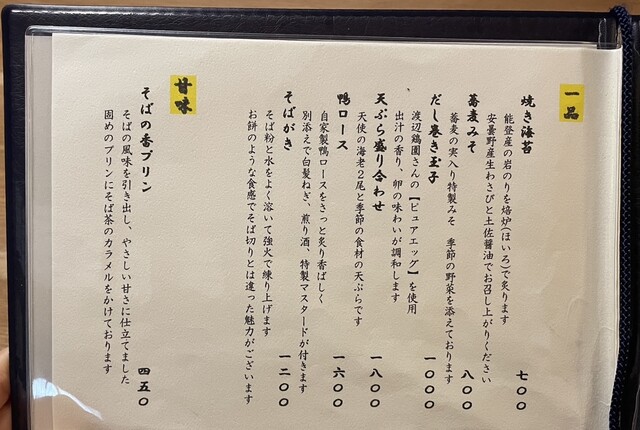 一品
焼き海苔 七〇〇
能登産の岩のりを焙炉(ほいろ)で炙ります
安曇野産生わさびと土佐醤油でお召し上がりください
蕎麦みそ 八〇〇
蕎麦の実入り特製みそ 季節の野菜を添えております
だし巻き玉子 一〇〇〇
渡辺鶏園さんの【ピュアエッグ】を使用
出汁の香り、卵の味わいが調和します
天ぷら盛り合わせ 一八〇〇
天使の海老2尾と季節の食材の天ぷらです
鴨ロース 一六〇〇
自家製鴨ロースをさっと炙り香ばしく
別添えで白髪ねぎ、煎り酒、特製マスタードが付きます
そばがき 一二〇〇
そば粉と水をよく溶いて強火で練り上げます
お餅のような食感でそば切りとは違った魅力がございます
甘味
そばの香プリン 四五〇
そばの風味を引き出し、やさしい甘さに仕立てました
固めのプリンにそば茶のカラメルをかけております